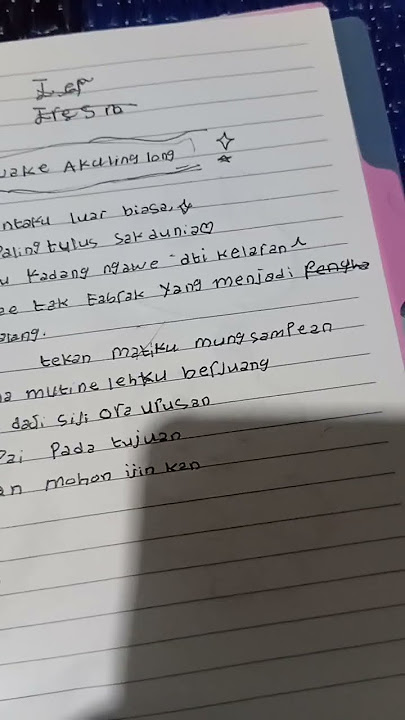 Akuling long
ntaku luar biasa,
Paling tulus sakdunia
u Kadang ngawe ati kelaran
ee tak Tabrak Yang menjadi
alang.
tekan matiku mung sampean
a mutine lehku berjuang
dadi siji ora urusan
Pai Pada tujuan
an mohon ijin kan